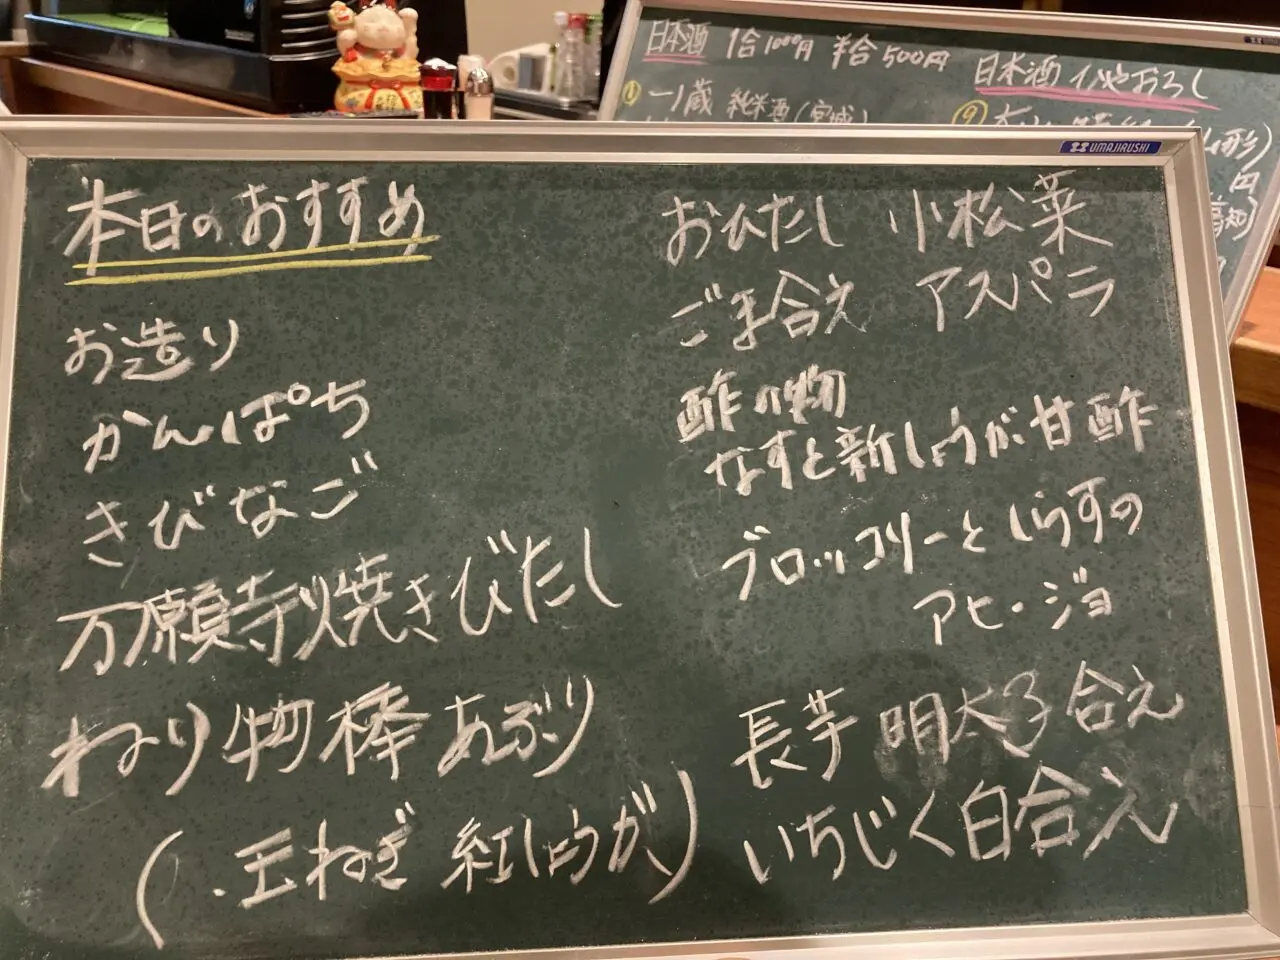 本日のおすすめ
お造り
かんぱち
きびなご
万願寺焼きびたし
ねり物棒あぶり
(・玉ねぎ 紅しょうが)
おひたし 小松菜
ごま合え アスパラ
酢の物
なすと新しょうが甘酢
ブロッコリーとしらすの
アヒ・ジョ
長芋 明太子合え
いちじく白合え
UMAJIRUSHI
日本酒 1合1000円 半合500円
① 一ノ蔵 純米酒(宮城)
日本酒 ひやおろし
⑨
形)
円
高知)